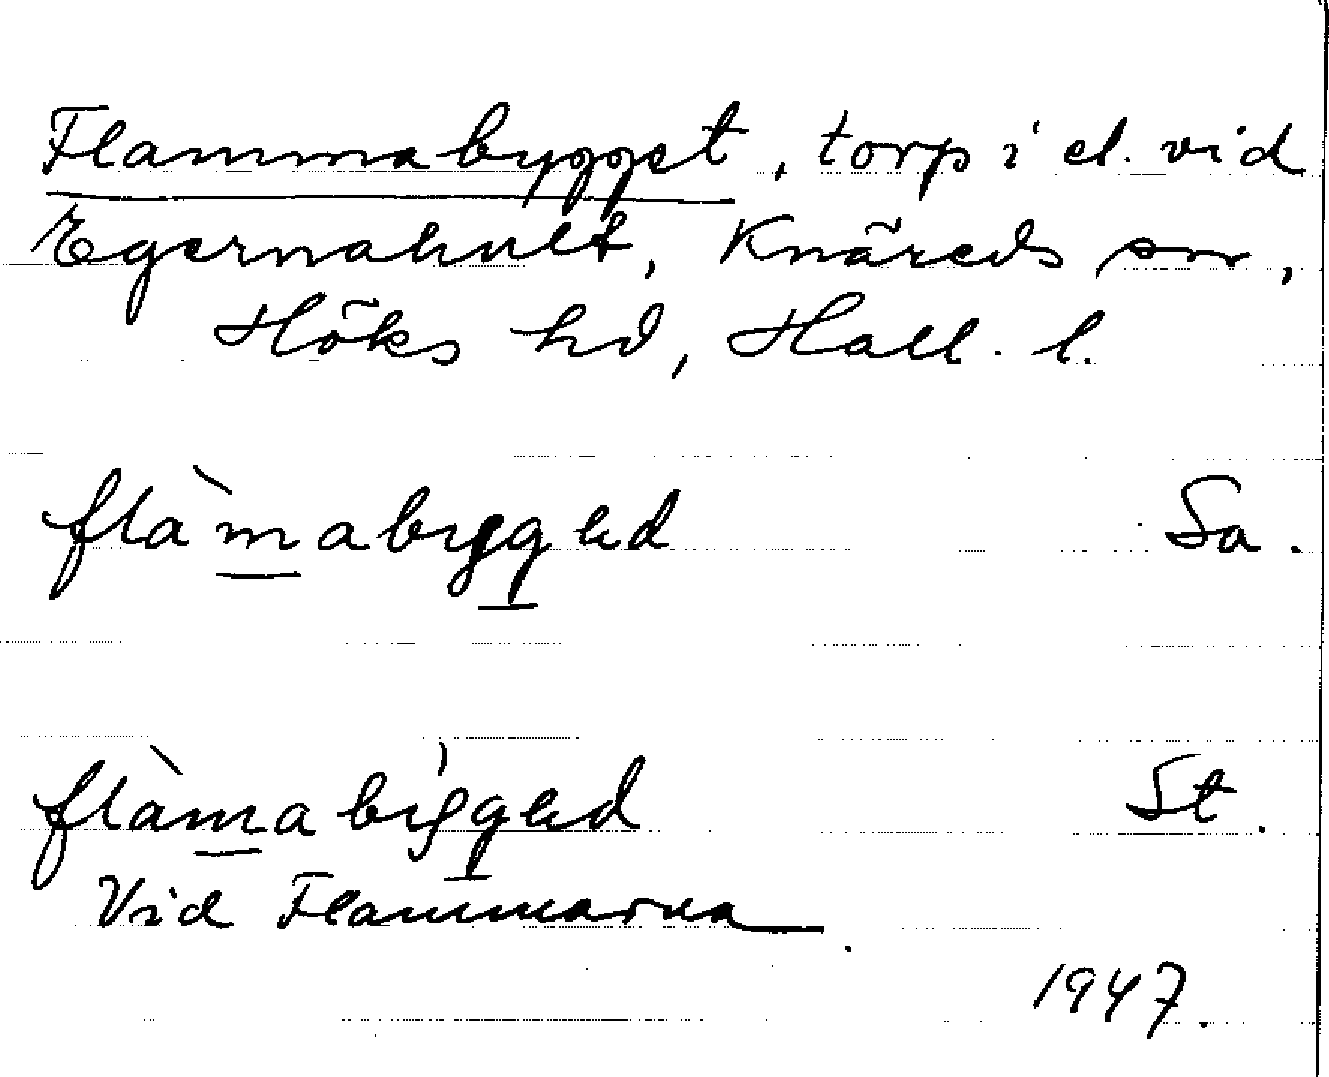 Flammabygget, torp i el. vid
Egernahult, Knäreds sn,
Höks hd, Hall. l.
flàmabygəd Sa.
flàmabýgəd St.
Vid Flammarna.
1947.